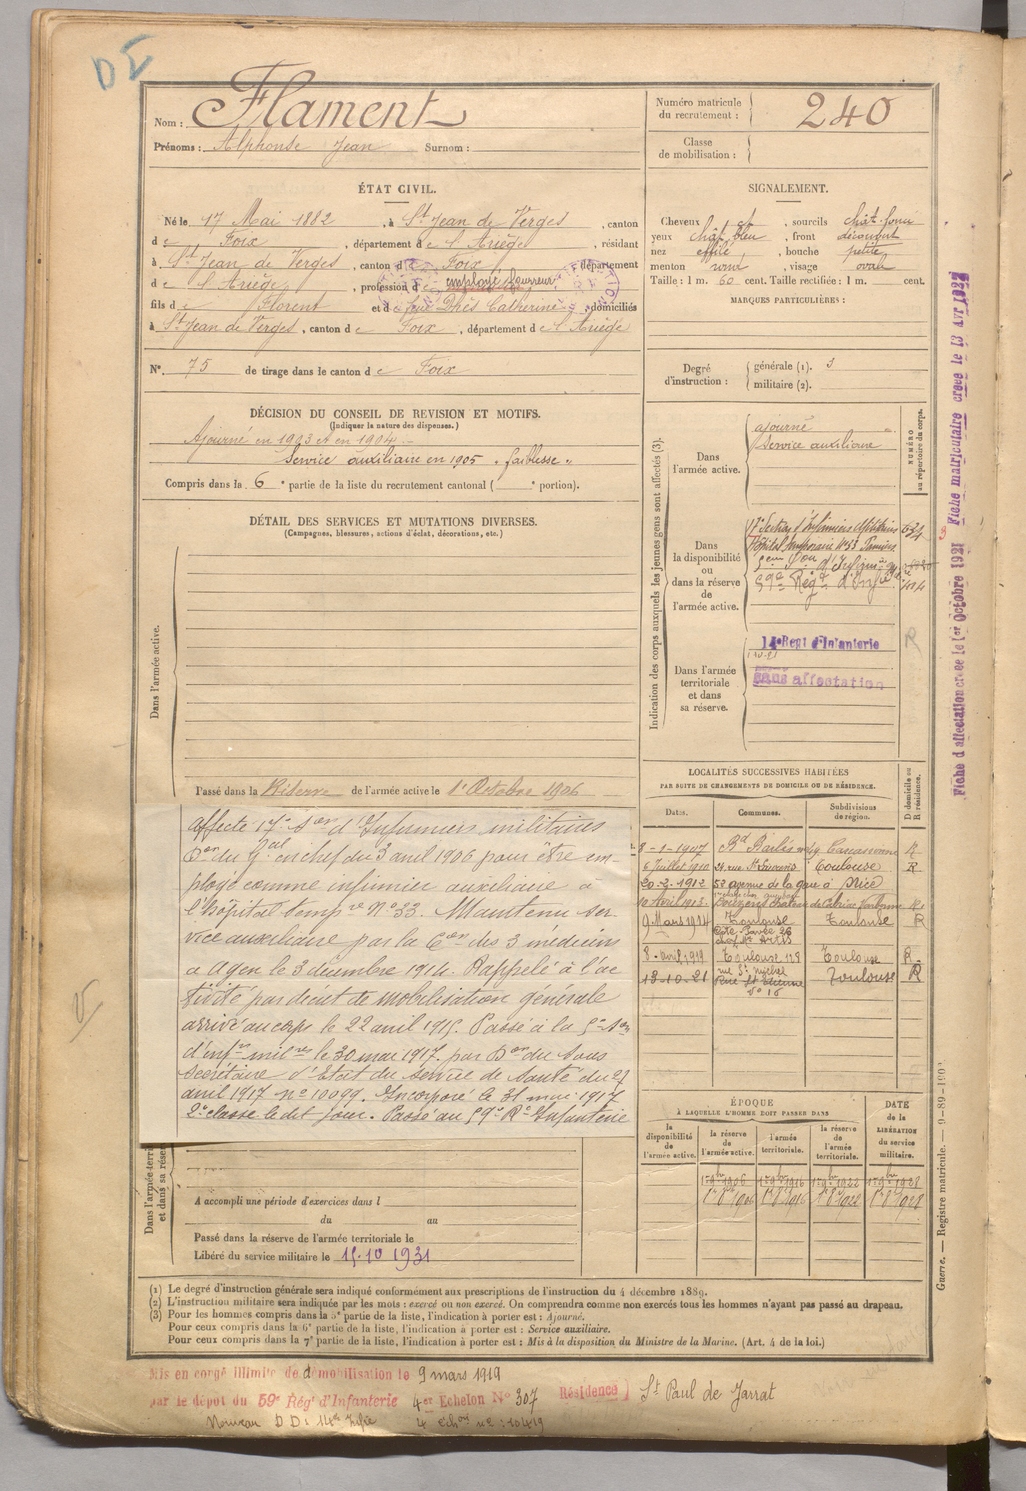 DE
Nom : Flament
Prénoms : Alphonse Jean Surnom :
Numéro matricule du recrutement : 240
Classe de mobilisation :
ÉTAT CIVIL.
Né le 17 Mai 1882, à St Jean de Verges, canton
de Foix, département de l'Ariège, résidant
à St Jean de Verges, canton de Foix, département
de l'Ariège, profession de employé
fils de Florent et de feue Catherine, domiciliés
à St Jean de Verges, canton de Foix, département de l'Ariège
N° 75 de tirage dans le canton de Foix
SIGNALEMENT.
Cheveux, sourcils
yeux bleu, front découvert
nez effilé, bouche petite
menton rond, visage ovale
Taille : 1 m. 60 cent. Taille rectifiée : 1 m. cent.
MARQUES PARTICULIÈRES :
Degré d'instruction :
générale (1). 3
militaire (2).
DÉCISION DU CONSEIL DE REVISION ET MOTIFS.
(Indiquer la nature des dispenses.)
Ajourné en 1903 et en 1904
Service auxiliaire en 1905 "faiblesse"
Compris dans la 6e partie de la liste du recrutement cantonal ( portion).
DÉTAIL DES SERVICES ET MUTATIONS DIVERSES.
(Campagnes, blessures, actions d'éclat, décorations, etc.)
Dans l'armée active.
Passé dans la Réserve de l'armée active le 1er Octobre 1906
affecté 17e Son d'Infirmiers militaires
Don du Gal en chef du 3 avril 1906 pour être em-
ployé comme infirmier auxiliaire à
l'Hôpital tempre N° 33. Maintenu ser-
vice auxiliaire par la Con des 3 médecins
a Agen le 3 décembre 1914. Rappelé à l'ac
tivité par décret de mobilisation générale
arrivé au corps le 22 avril 1915. Passé à la 5e Son
d'infrs milres le 30 mai 1917. par Don du Sous
Secrétaire d'Etat du service de Santé du 27
avril 1917 n° 10099. Incorporé le 31 mai 1917
2e classe le dit jour. Passé au 59e Rt Infanterie
A accompli une période d'exercices dans l
du au
Passé dans la réserve de l'armée territoriale le
Libéré du service militaire le 15.10 1931
Indication des corps auxquels les jeunes gens sont affectés (3).
NUMÉRO au répertoire du corps.
Dans l'armée active.
ajourné
Service auxiliaire
Dans la disponibilité ou dans la réserve de l'armée active.
17e Section d'Infirmiers Militaires
Hôpital temporaire N° 53 Pamiers
59e Régt d'Infie
Dans l'armée territoriale et dans sa réserve.
14e Regt d'Infanterie
sans affectation
R
LOCALITÉS SUCCESSIVES HABITÉES
PAR SUITE DE CHANGEMENTS DE DOMICILE OU DE RÉSIDENCE.
Dates. Communes. Subdivisions de région. D domicile ou R résidence.
8-1-1907 Bd Barbès Carcassonne R
6 Juillet 1910 Toulouse R
20-2-1912 52 avenue de la gare à Nice
10 Avril 1913 Narbonne R
9 Mars 1914 Toulouse Toulouse R
8 avril 1919 Toulouse Toulouse R
13-10-21 Rue St Etienne N° 16 Toulouse R
ÉPOQUE
À LAQUELLE L'HOMME DOIT PASSER DANS
DATE de la LIBÉRATION du service militaire.
la disponibilité de l'armée active.
la réserve de l'armée active.
l'armée territoriale.
la réserve de l'armée territoriale.
1er 9bre 1906 1er 9bre 1916 1er 9bre 1922 1er 9bre 1928
Fiche d'affectation créée le 1er Octobre 1921 Fiche matriculaire créée le
Guerre. — Registre matricule.
(1) Le degré d'instruction générale sera indiqué conformément aux prescriptions de l'instruction du 4 décembre 1889.
(2) L'instruction militaire sera indiquée par les mots : exercé ou non exercé. On comprendra comme non exercés tous les hommes n'ayant pas passé au drapeau.
(3) Pour les hommes compris dans la 5e partie de la liste, l'indication à porter est : Ajourné.
Pour ceux compris dans la 6e partie de la liste, l'indication à porter est : Service auxiliaire.
Pour ceux compris dans la 7e partie de la liste, l'indication à porter est : Mis à la disposition du Ministre de la Marine. (Art. 4 de la loi.)
Mis en congé illimité de démobilisation le 9 mars 1919
par le dépôt du 59e Rég' d'Infanterie 4er Echelon N° 307 Résidence) St Paul de Jarrat
Nouveau D.D : 14e Infie 4 échon n° : 10419